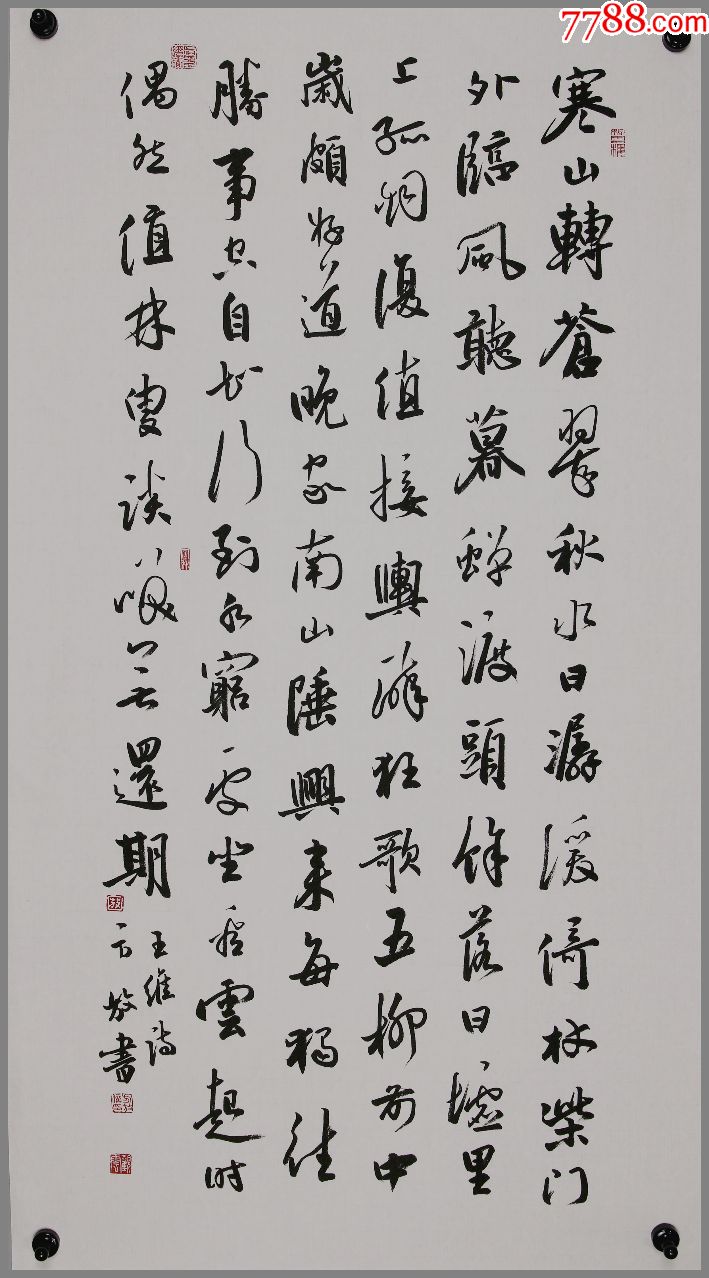 7788.com
寒山轉蒼翠秋水日潺湲倚杖柴门
外臨風聽暮蟬渡頭餘落日墟里
上孤烟復值接輿醉狂歌五柳前中
歲頗好道晚家南山陲興來每獨往
勝事空自知行到水窮處坐看雲起时
偶然值林叟談笑無還期
王維詩
書